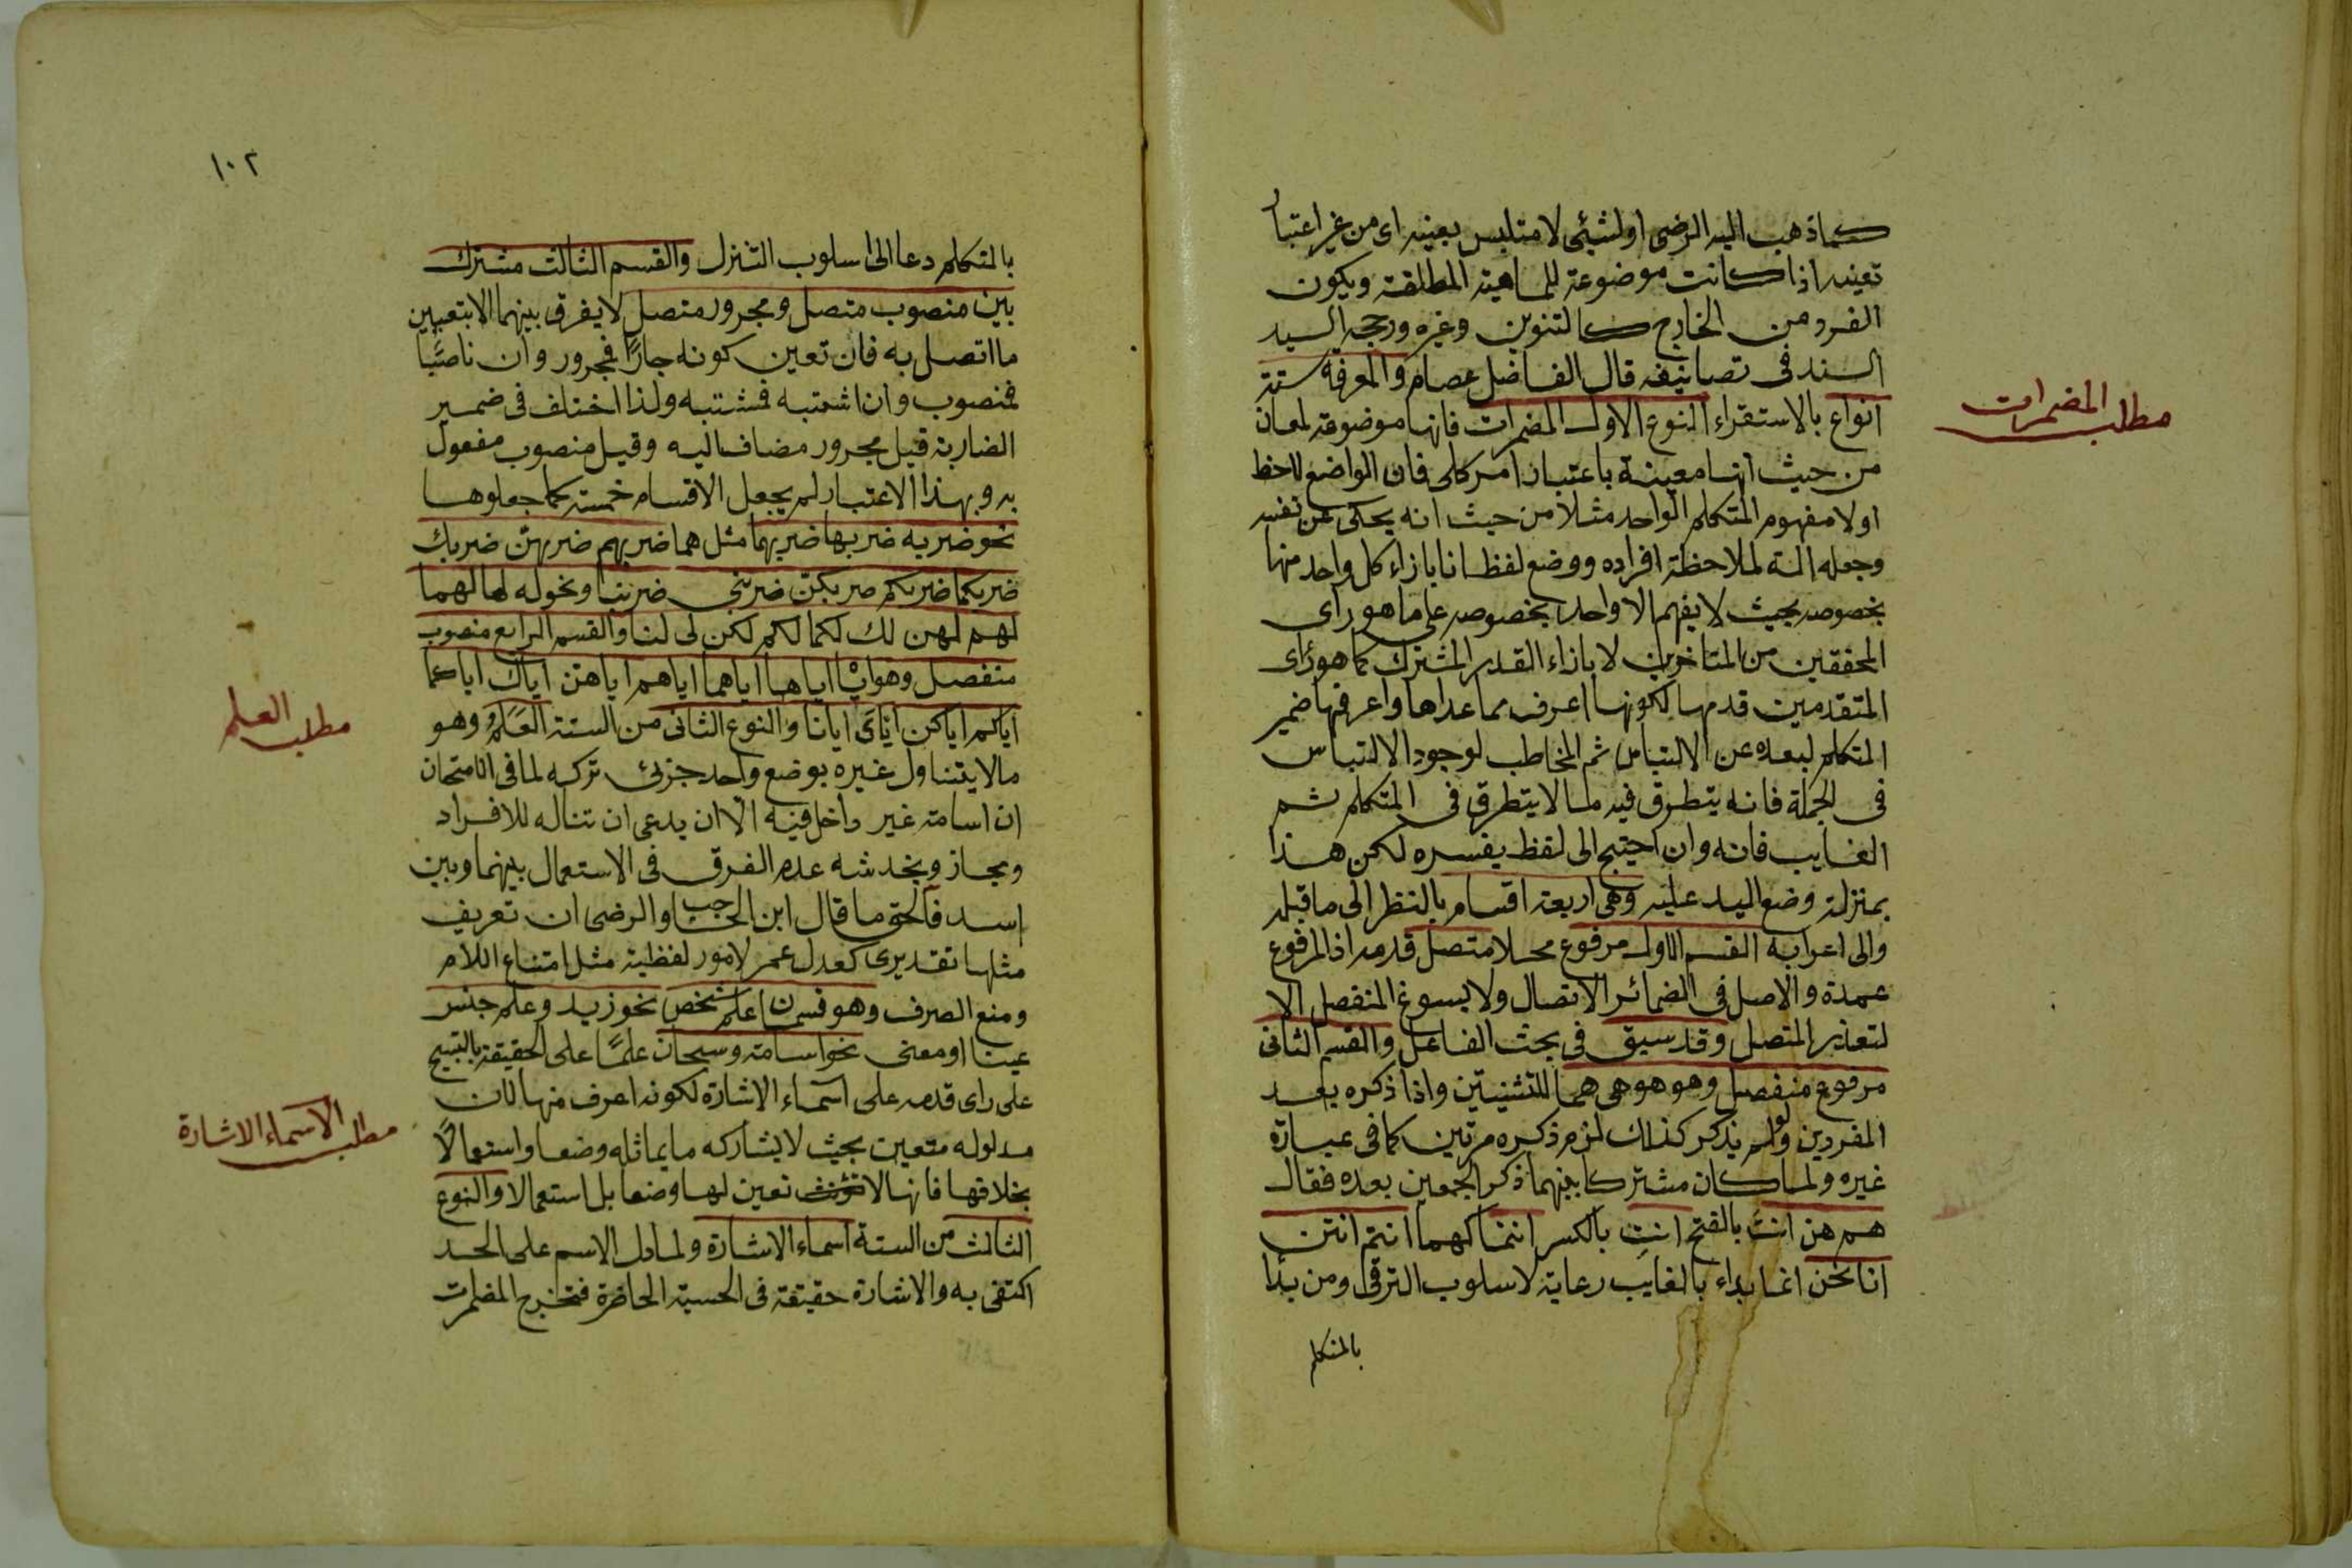 كما ذهب اليه الرضى او لشيئ لا متلبس بعينه اى من غير اعتبار
تعينه اذا كانت موضوعة للماهية المطلقة ويكون
الفرد من الخارج كالتنوين وغيره ورجحه السيد
السند فى تصانيفه قال الفاضل عصام والمعرفة ستة
انواع بالاستقراء النوع الاول المضمرات فانها موضوعة لمعان
مطلب المضمرات
من حيث انها معينة باعتبار امر كلى فان الواضع لاحظ
اولا مفهوم المتكلم الواحد مثلا من حيث انه يحكى عن نفسه
وجعله آلة لملاحظة افراده ووضع لفظ انا بازاء كل واحد منها
بخصوصه بحيث لا يفهم الا واحد بخصوصه على ما هو راى
المحققين من المتاخرين لا بازاء القدر المشترك كما هو رأى
المتقدمين قدمها لكونها اعرف مما عداها واعرفها ضمير
المتكلم لبعده عن الالتباس ثم المخاطب لوجود الالتباس
فى الجملة فانه يتطرق فيه ما لا يتطرق فى المتكلم ثم
الغايب فانه وان احتيج الى لفظ يفسره لكن هذا
بمنزلة وضع اليد عليه وهى اربعة اقسام بالنظر الى ما قبله
والى اعرابه القسم الاول مرفوع محلا متصل قدمه اذ المرفوع
عمدة والاصل فى الضمائر الاتصال ولا يسوغ المنفصل الا
لتعذر المتصل وقد سبق فى بحث الفاعل والقسم الثانى
مرفوع منفصل وهو هو هى هما للتثنيتين واذا ذكره بعد
المفردين ولو لم يذكر كذلك لزم ذكره مرتين كما فى عبارة
غيره ولما كان مشتركا بينهما ذكر الجمعين بعده فقال
هم هن انتَ بالفتح انتِ بالكسر انتما كهما انتم انتن
انا نحن انما بداء بالغايب رعاية لاسلوب الترقى ومن بدأ
بالمتكلم
١٠٢
بالمتكلم دعا الى اسلوب التنزل والقسم الثالث مشترك
بين منصوب متصل ومجرور متصل لا يفرق بينهما الا بتعيين
ما اتصل به فان تعين كونه جارًا فمجرور وان ناصبًا
فمنصوب وان اشتبه فمشتبه ولذا اختلف فى ضمير
الضاربة قيل مجرور مضاف اليه وقيل منصوب مفعول
به وبهذا الاعتبار لم يجعل الاقسام خمسة كما جعلوها
نحو ضربه ضربها ضربهما مثل هما ضربهم ضربهنّ ضربك
ضربكما ضربكم ضربكنّ ضربنى ضربنا ونحو له لها لهما
لهم لهن لك لكما لكم لكن لى لنا والقسم الرابع منصوب
منفصل وهو اياه اياها اياهما اياهم اياهن اياك اياكما
اياكم اياكن اياىَ ايانا والنوع الثانى من الستة العَلَمُ وهو
مطلب العلم
ما لا يتناول غيره بوضع واحد جزئى تركه لما فى الامتحان
ان اسامة غير داخل فيه الّا ان يدعى ان تناله للافراد
ومجاز ويخدشه عدم الفرق فى الاستعمال بينهما وبين
اسد فالحق ما قال ابن الحاجب والرضى ان تعريف
مثلها تقديرى كعدل عمر لامور لفظية مثل امتناع اللام
ومنع الصرف وهو قسمان علم شخص نحو زيد وعلم جنس
عينا او معنى نحو اسامة وسبحان علمًا على الحقيقة بالتسبيح
على راى قدمه على اسماء الاشارة لكونه اعرف منها لان
مطلب الاسماء الاشارة
مدلوله متعين بحيث لا يشاركه ما يماثله وضعا واستعمالًا
بخلافها فانها لا تعين لها وضعا بل استعمالا والنوع
الثالث من الستة اسماء الاشارة ولما دل الاسم على الحد
اكتفى به والاشارة حقيقة فى الحسية الحاضرة فتخرج المضمرات